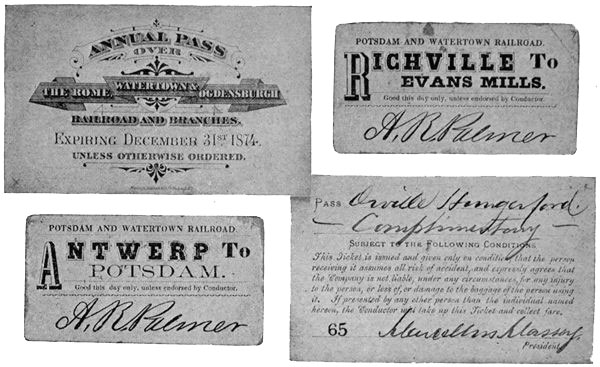 ANNUAL PASS
OVER
THE ROME WATERTOWN & OGDENSBURGH
RAILROAD AND BRANCHES.
EXPIRING DECEMBER 31ST 1874.
UNLESS OTHERWISE ORDERED.
POTSDAM AND WATERTOWN RAILROAD.
RICHVILLE TO
EVANS MILLS.
Good this day only, unless endorsed by Conductor.
A. R. Palmer
POTSDAM AND WATERTOWN RAILROAD.
ANTWERP TO
POTSDAM.
Good this day only, unless endorsed by Conductor.
A. R. Palmer
PASS Orville Hungerford.
Complimentary
SUBJECT TO THE FOLLOWING CONDITIONS
This Ticket is issued and given only on condition that the person
receiving it assumes all risk of accident, and expressly agrees that
the Company is not liable, under any circumstances, for any injury
to the person, or loss of, or damage to the baggage of the person using
it. If presented by any other person than the individual named
hereon, the Conductor will take up this Ticket and collect fare.
65 Marcellus Massey
President